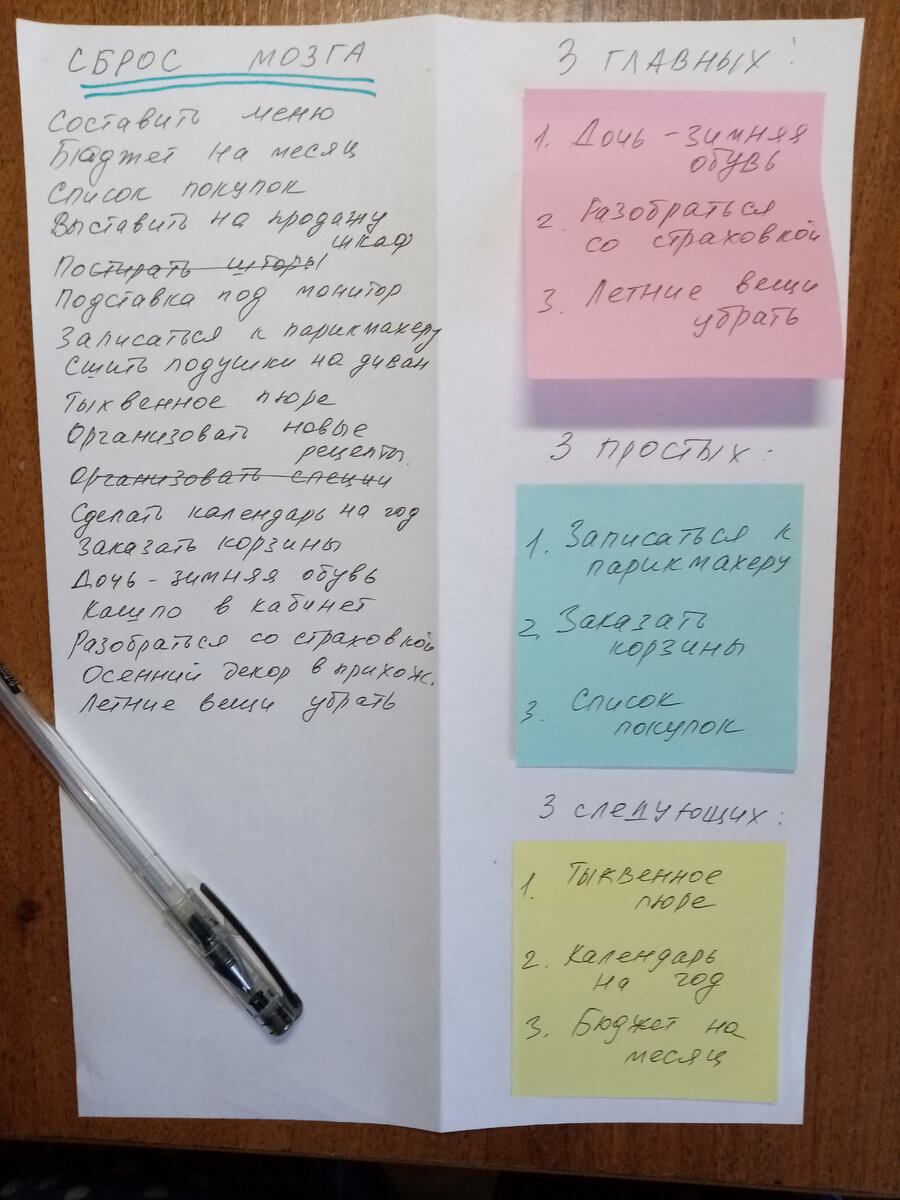 СБРОС МОЗГА
Составить меню
Бюджет на месяц
Список покупок
Выставить на продажу
шкаф
Постирать шторы
Подставка под монитор
Записаться к парикмахеру
Сшить подушки на диван
Тыквенное пюре
Организовать новые
рецепты.
Организовать специи
Сделать календарь на год
Заказать корзины
Дочь - зимняя обувь
Кашпо в кабинет
Разобраться со страховкой
Осенний декор в прихож.
Летние вещи убрать
3 ГЛАВНЫХ:
1. Дочь - зимняя
обувь
2. Разобраться
со страховкой
3. Летние вещи
убрать
3 ПРОСТЫХ:
1. Записаться к
парикмахеру
2. Заказать
корзины
3. Список
покупок
3 СЛЕДУЮЩИХ:
1. Тыквенное
пюре
2. Календарь
на год
3. Бюджет на
месяц